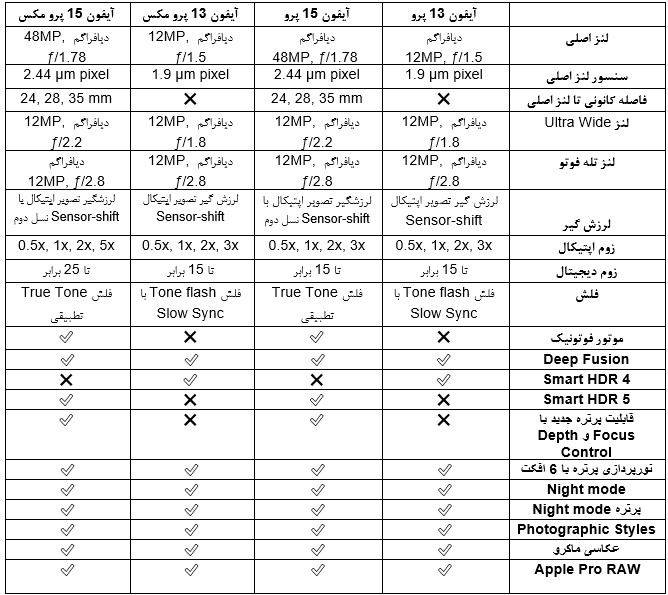 آیفون 13 پرو	آیفون 15 پرو	آیفون 13 پرو مکس	آیفون 15 پرو مکس
لنز اصلی	دیافراگم 12MP, ƒ/1.5	دیافراگم 48MP, ƒ/1.78	دیافراگم 12MP, ƒ/1.5	دیافراگم 48MP, ƒ/1.78
سنسور لنز اصلی	1.9 µm pixel	2.44 µm pixel	1.9 µm pixel	2.44 µm pixel
فاصله کانونی تا لنز اصلی	❌	24, 28, 35 mm	❌	24, 28, 35 mm
لنز Ultra Wide	دیافراگم 12MP, ƒ/1.8	دیافراگم 12MP, ƒ/2.2	دیافراگم 12MP, ƒ/1.8	دیافراگم 12MP, ƒ/2.2
لنز تله فوتو	دیافراگم 12MP, ƒ/2.8	دیافراگم 12MP, ƒ/2.8	دیافراگم 12MP, ƒ/2.8	دیافراگم 12MP, ƒ/2.8
لرزش گیر	لرزش گیر تصویر اپتیکال Sensor-shift	لرزشگیر تصویر اپتیکال با Sensor-shift نسل دوم	لرزش گیر تصویر اپتیکال Sensor-shift	لرزشگیر تصویر اپتیکال یا Sensor-shift نسل دوم
زوم اپتیکال	0.5x, 1x, 2x, 3x	0.5x, 1x, 2x, 3x	0.5x, 1x, 2x, 3x	0.5x, 1x, 2x, 5x
زوم دیجیتال	تا 15 برابر	تا 15 برابر	تا 15 برابر	تا 25 برابر
فلش	فلش Tone flash با Slow Sync	فلش True Tone تطبیقی	فلش Tone flash با Slow Sync	فلش True Tone تطبیقی
موتور فوتونیک	❌	✅	❌	✅
Deep Fusion	✅	✅	✅	✅
Smart HDR 4	✅	❌	✅	❌
Smart HDR 5	❌	✅	❌	✅
قابلیت پرتره جدید با Focus و Depth Control	❌	✅	❌	✅
نورپردازی پرتره با 6 افکت	✅	✅	✅	✅
Night mode	✅	✅	✅	✅
پرتره Night mode	✅	✅	✅	✅
Photographic Styles	✅	✅	✅	✅
عکاسی ماکرو	✅	✅	✅	✅
Apple Pro RAW	✅	✅	✅	✅